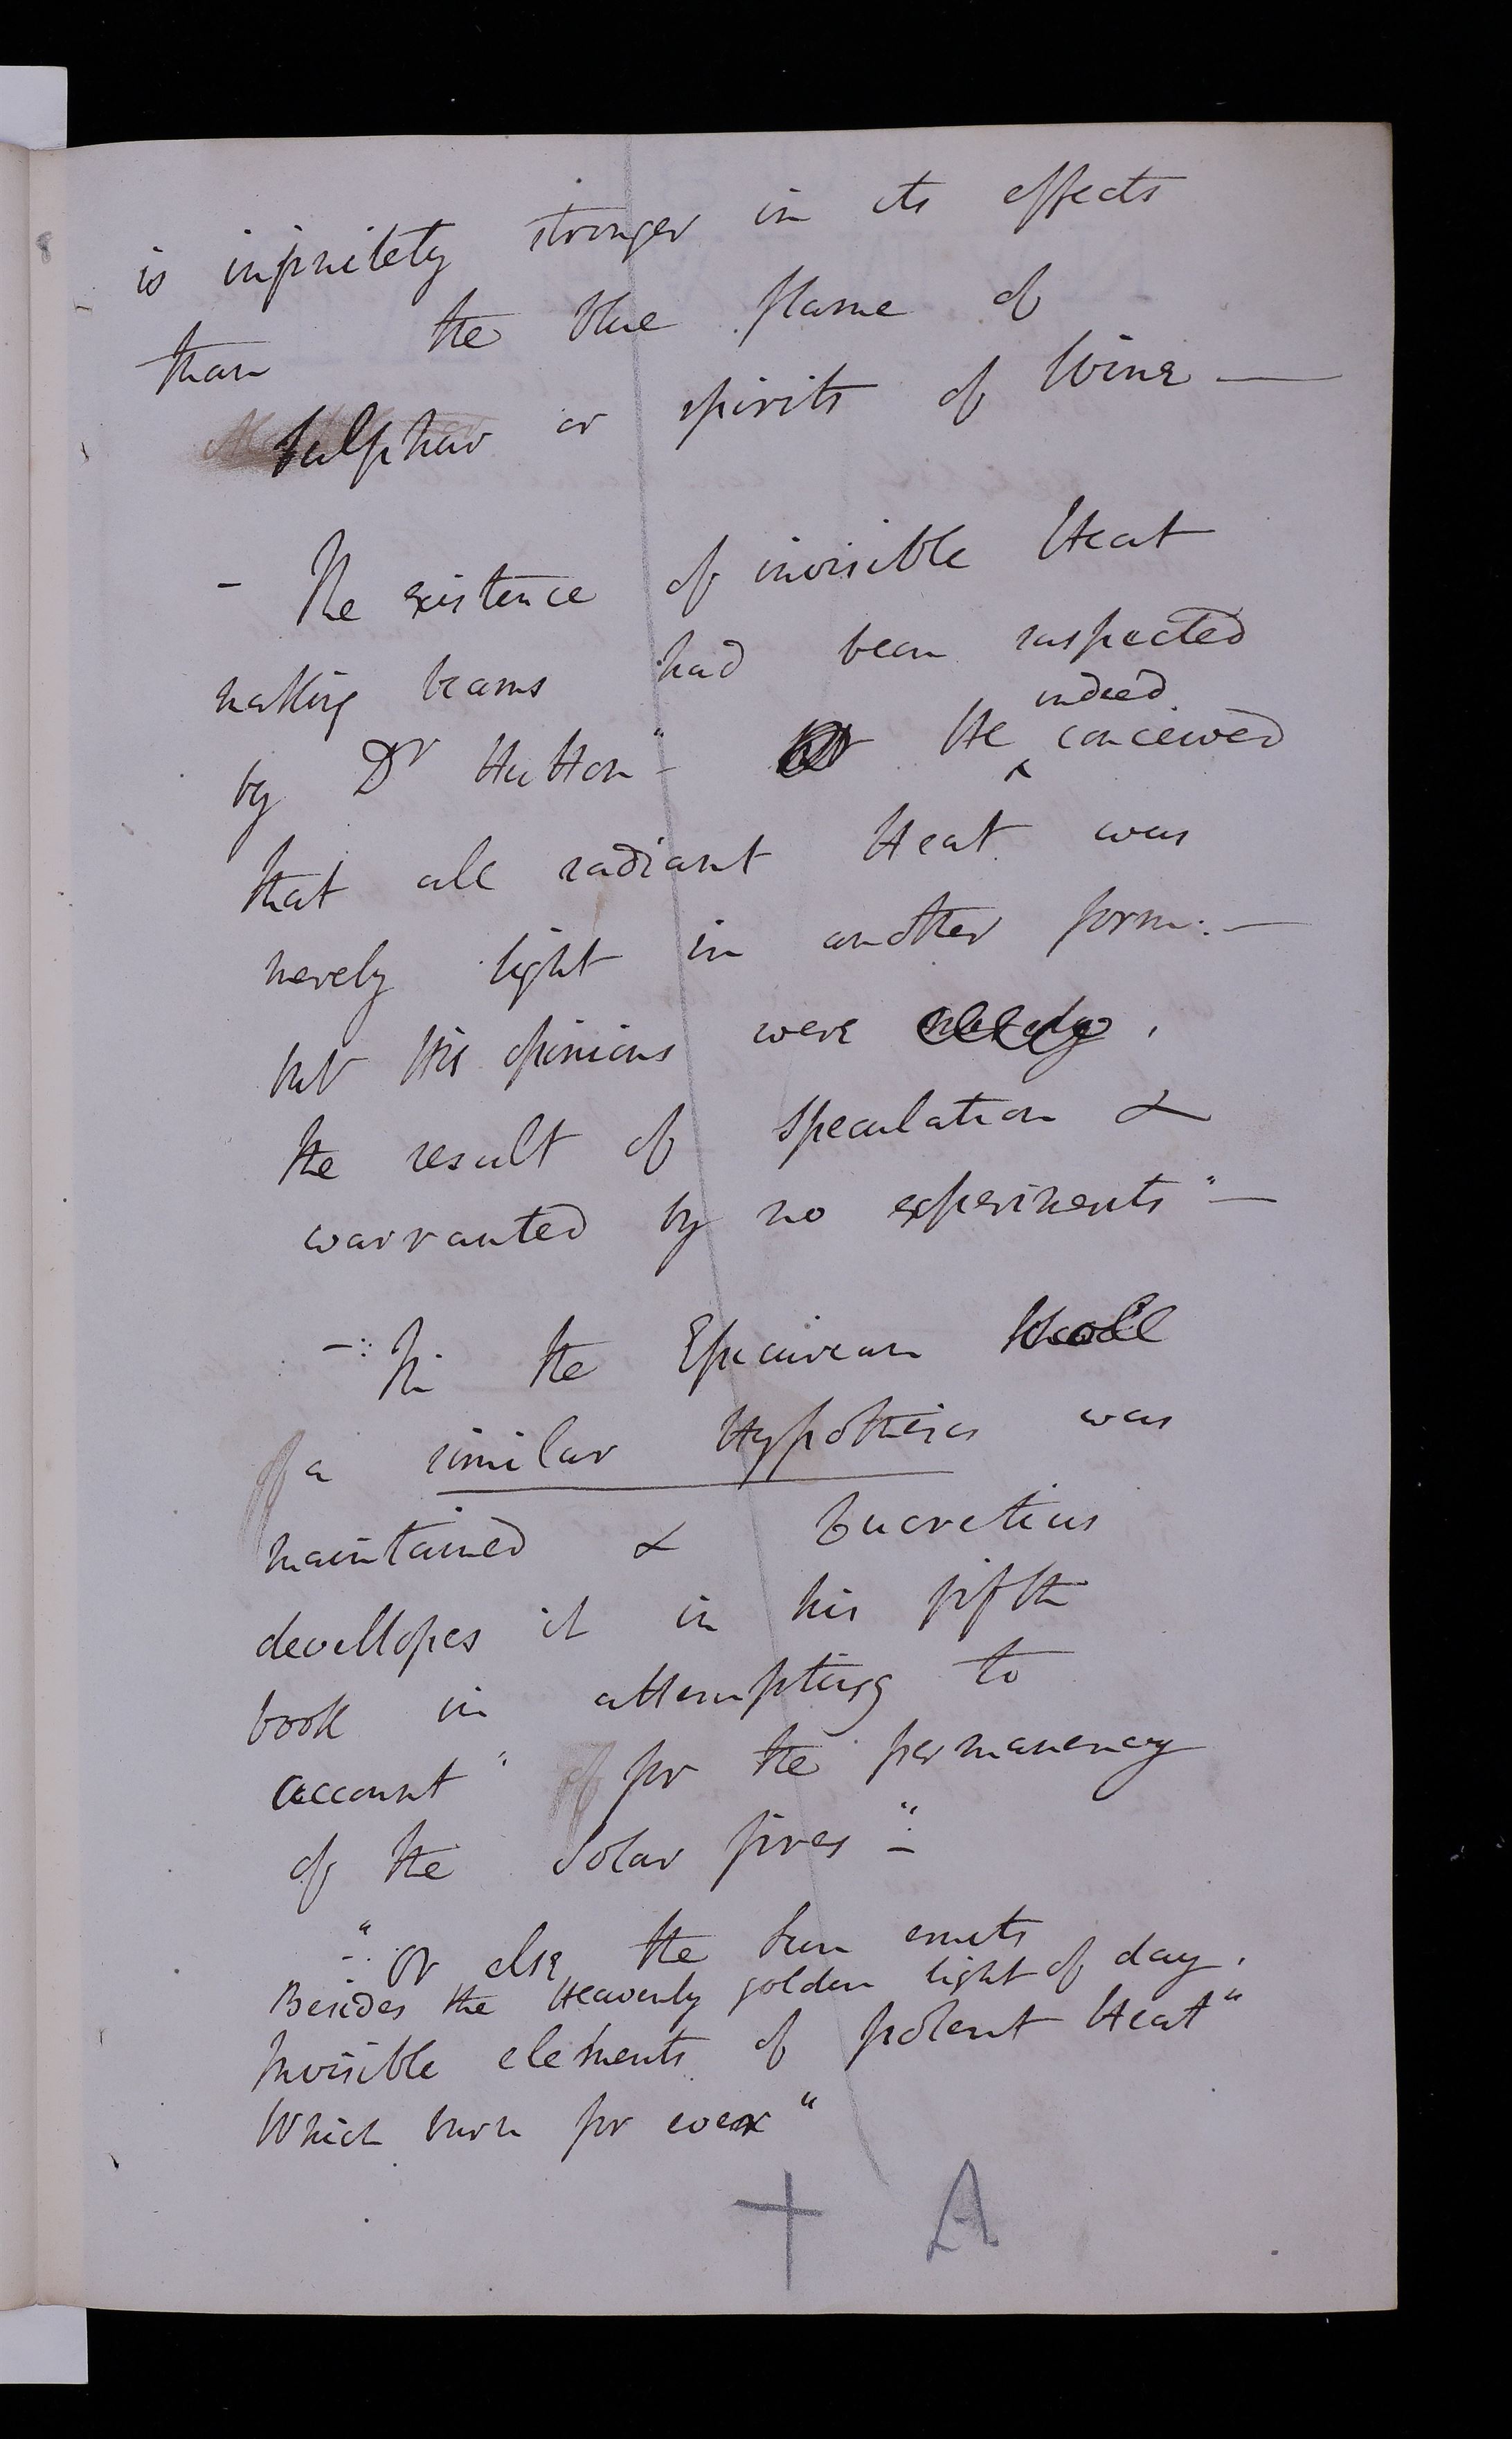 is infinitely stronger in its effects
than the blue flame of
Sulphur or spirits of Wine —
- The existence of invisible Heat
making beams had been suspected
by Dr Hutton" - He indeed conceived
that all radiant Heat was
merely light in another form. —
but his opinions were merely
the result of speculation &
warranted by no experiments" —
-: In the Epicurean School
a similar Hypothesis was
maintained & Lucretius
devellopes it in his fifth
book in attempting to
account " for the permanency
of the Solar fires" -
-" Or else the Sun emits
Besides the Heavenly golden light of day.
Invisible elements of potent Heat"
Which burn for ever"
+ A